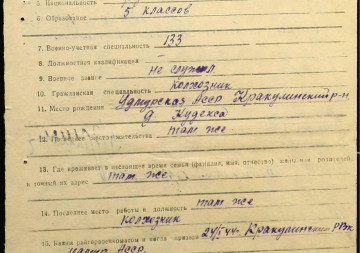 5. Национальность
6. Образование 5 классов
7. Военно-учетная специальность 133
8. Должностная квалификация
9. Военное звание не служил
10. Гражданская специальность колхозник
11. Место рождения Удмурская АССР, Кракулинский р-н
д. Кудекса
12. местожительства там же
13. Где проживает в настоящее время семья (фамилия, имя, отчество) жены или родителей
и точный их адрес там же
14. Последнее место работы и должность там же
колхозник
15. Каким райгорвоенкоматом и когда призван 24/I-44 Кракулинским РВК
АССР